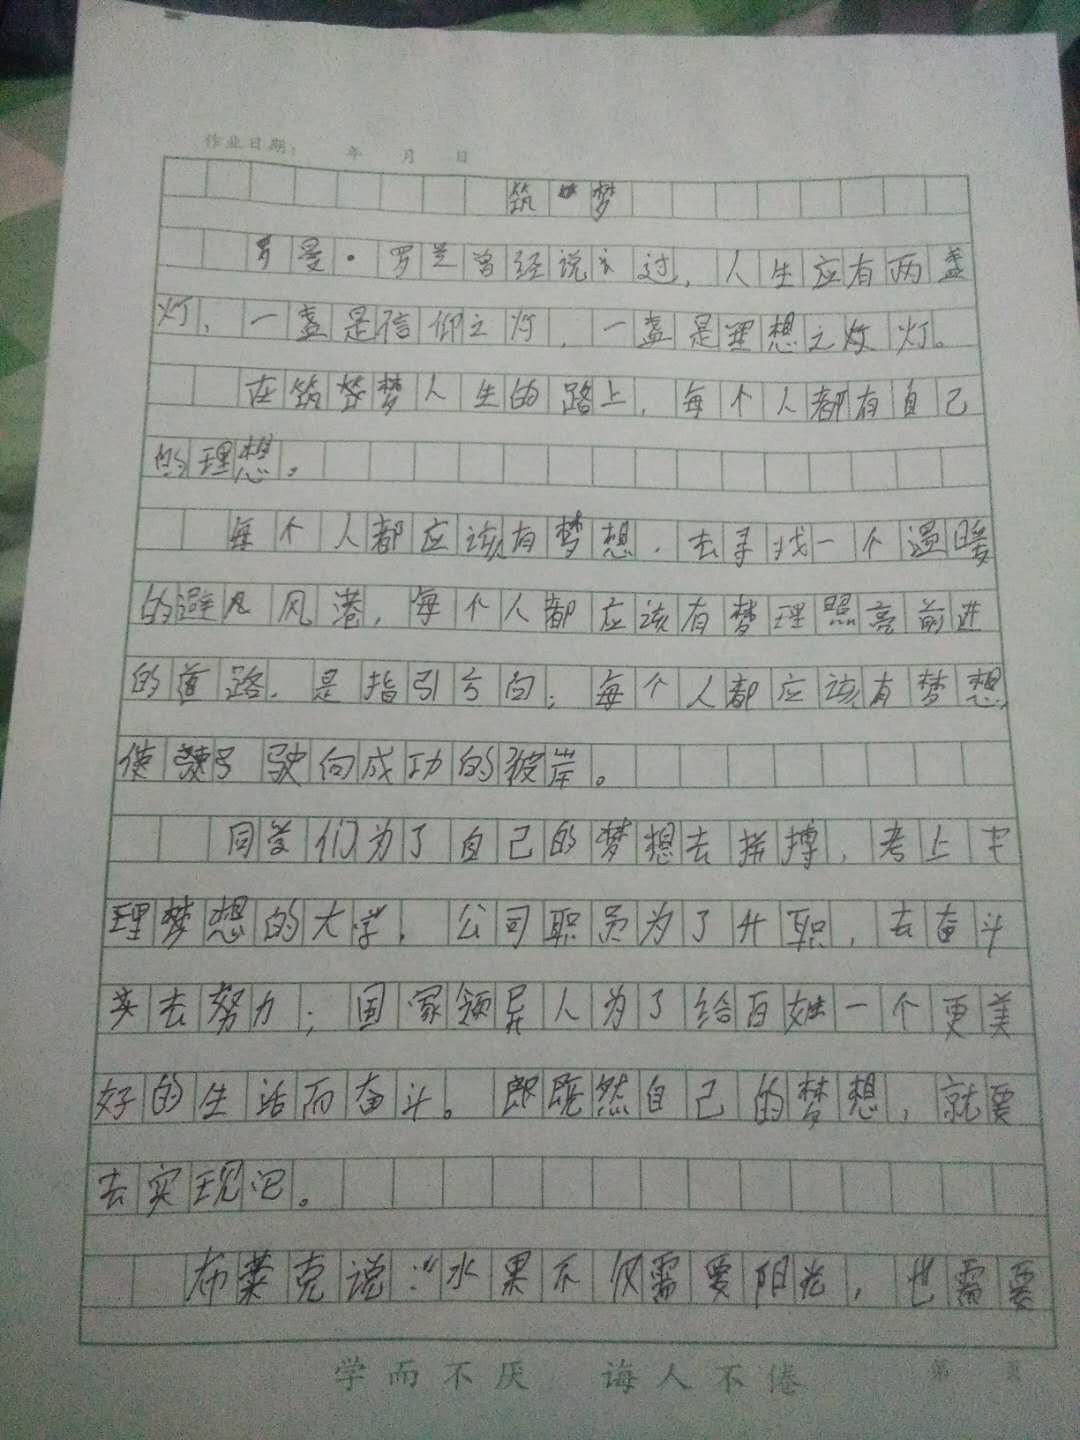 作业日期： 年 月 日
筑梦
罗曼·罗兰曾经说过，人生应有两盏
灯，一盏是信仰之灯，一盏是理想之灯。
在筑梦人生的路上，每个人都有自己
的理想。
每个人都应该有梦想，去寻找一个温暖
的避风港，每个人都应该有梦理照亮前进
的道路，是指引方向；每个人都应该有梦想，
使 驶向成功的彼岸。
同学们为了自己的梦想去拼搏，考上
理梦想的大学，公司职员为了升职，去奋斗
去努力；国家领导人为了给百姓一个更美
好的生活而奋斗。既然自己的梦想，就要
去实现它。
布莱克说：“水果不仅需要阳光，也需要
学而不厌 诲人不倦
第 页